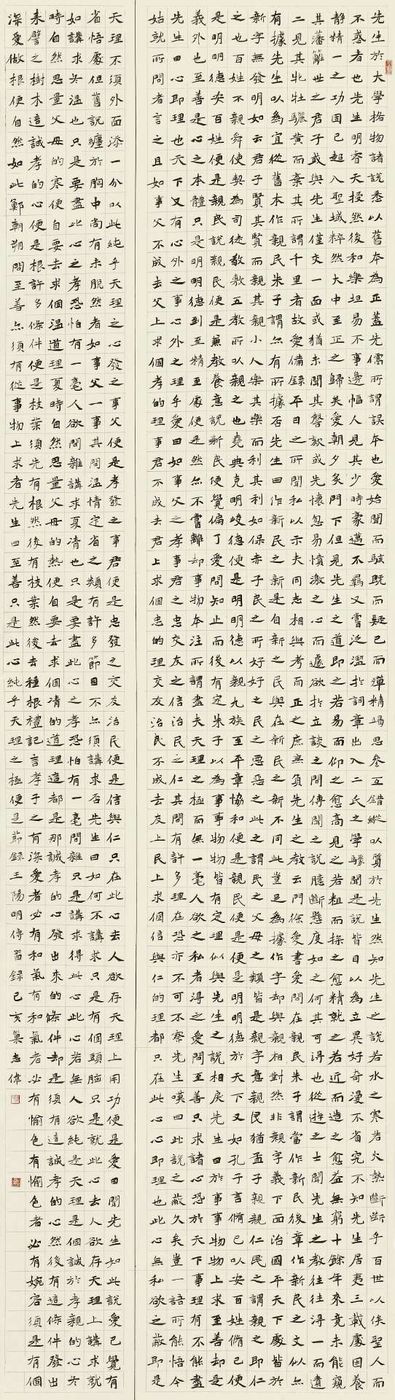 先生於大學格物諸說悉以舊本為正蓋先儒所謂誤本者也愛始聞而駭既而疑已而殫精竭思參互錯縱以質於先生然後知先生之說若水之寒若火之熱斷斷乎百世以俟聖人而
不惑者也先生明睿天授然和樂坦易不事邊幅人見其少時豪邁不羈又嘗泛濫於詞章出入二氏之學驟聞是說皆目以為立異好奇漫不省究不知先生居夷三載處困養
靜精一之功固已超入聖域粹然大中至正之歸矣愛朝夕炙門下但見先生之道即之若易而仰之愈高見之若粗而探之愈精就之若近而造之愈益無窮十餘年來竟未能窺
其藩籬世之君子或與先生僅交一面或猶未聞其謦欬或先懷忽易憤激之心而遽欲於立談之間傳聞之說臆斷懸度如之何其可得也從遊之士聞先生之教往往得一而遺
二見其牝牡驪黃而棄其所謂千里者故愛備錄平日之所聞私以示夫同志相與考而正之庶無負先生之教云門人徐愛書愛問在親民朱子謂當作新民後章作新民之文似亦
有據先生以為宜從舊本作親民亦有所據否先生曰作新民之新是自新之民與在新民之新不同此豈足為據作字卻與親字相對然非親字義下面治國平天下處皆於
新字無發明如云君子賢其賢而親其親小人樂其樂而利其利如保赤子民之所好好之民之所惡惡之此之謂民之父母之類皆是親字意親民猶孟子親親仁民之謂親之即仁
之也百姓不親舜使契為司徒敬敷五教所以親之也堯典克明峻德便是明明德以親九族至平章協和便是親民便是明明德於天下又如孔子言修己以安百姓修己便
是明明德安百姓便是親民說親民便是兼教養意說新民便覺偏了愛問知止而後有定朱子以為事事物物皆有定理似與先生之說相戾先生曰於事事物物上求至善卻是
義外也至善是心之本體只是明明德到至精至一處便是然亦未嘗離卻事物本注所謂盡夫天理之極而無一毫人欲之私者得之愛問至善只求諸心恐於天下事理有不能盡
先生曰心即理也天下又有心外之事心外之理乎愛曰如事父之孝事君之忠交友之信治民之仁其間有許多理在恐亦不可不察先生嘆曰此說之蔽久矣豈一語所能悟今
姑就所問者言之且如事父不成去父上求個孝的理事君不成去君上求個忠的理交友治民不成去友上民上求個信與仁的理都只在此心心即理也此心無私欲之蔽即是
天理不須外面添一分以此純乎天理之心發之事父便是孝發之事君便是忠發之交友治民便是信與仁只在此心去人欲存天理上用功便是愛曰聞先生如此說愛已覺有
省悟處但舊說纏於胸中尚有未脫然者如事父一事其間溫凊定省之類有許多節目不亦須講求否先生曰如何不講求只是有個頭腦只是就此心去人欲存天理上講求就
如講求冬溫也只是要盡此心之孝恐怕有一毫人欲間雜講求夏凊也只是要盡此心之孝恐怕有一毫人欲間雜只是講求得此心此心若無人欲純是天理是個誠於孝親的心冬
時自然思量父母的寒便自要去求個溫的道理夏時自然思量父母的熱便自要去求個凊的道理這都是那誠孝的心發出來的條件卻是須有這誠孝的心然後有這條件發出
來譬之樹木這誠孝的心便是根許多條件便是枝葉須先有根然後有枝葉不是先尋了枝葉然後去種根禮記言孝子之有深愛者必有和氣有和氣者必有愉色有愉色者必有婉容須是有個
深愛做根便自然如此鄭朝朔問至善亦須有從事物上求者先生曰至善只是此心純乎天理之極便是節錄王陽明傳習錄己亥冀志偉